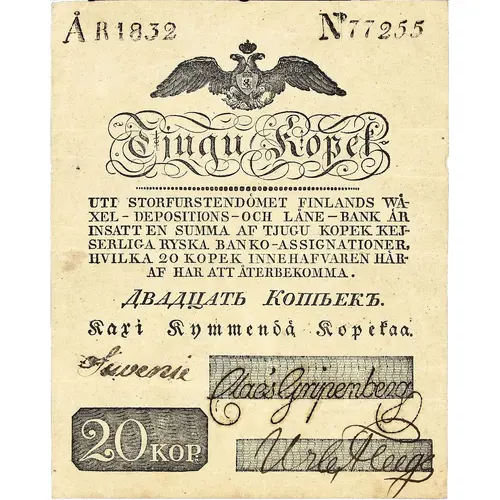 ÅR 1832 Nº 77255
Tjugu Kopek
UTI STORFURSTENDÖMET FINLANDS WÄ-
XEL-DEPOSITIONS-OCH LÅNE-BANK ÄR
INSATT EN SUMMA AF TJUGU KOPEK KEJ-
SERLIGA RYSKA BANKO-ASSIGNATIONER,
HVILKA 20 KOPEK INNEHAFVAREN HÄR-
AF HAR ATT ÅTERBEKOMMA.
ДВАДЦАТЬ КОПѢЕКЪ.
Kaxi Kymmendä Kopekaa.
Claës Gripenberg
20 KOP.